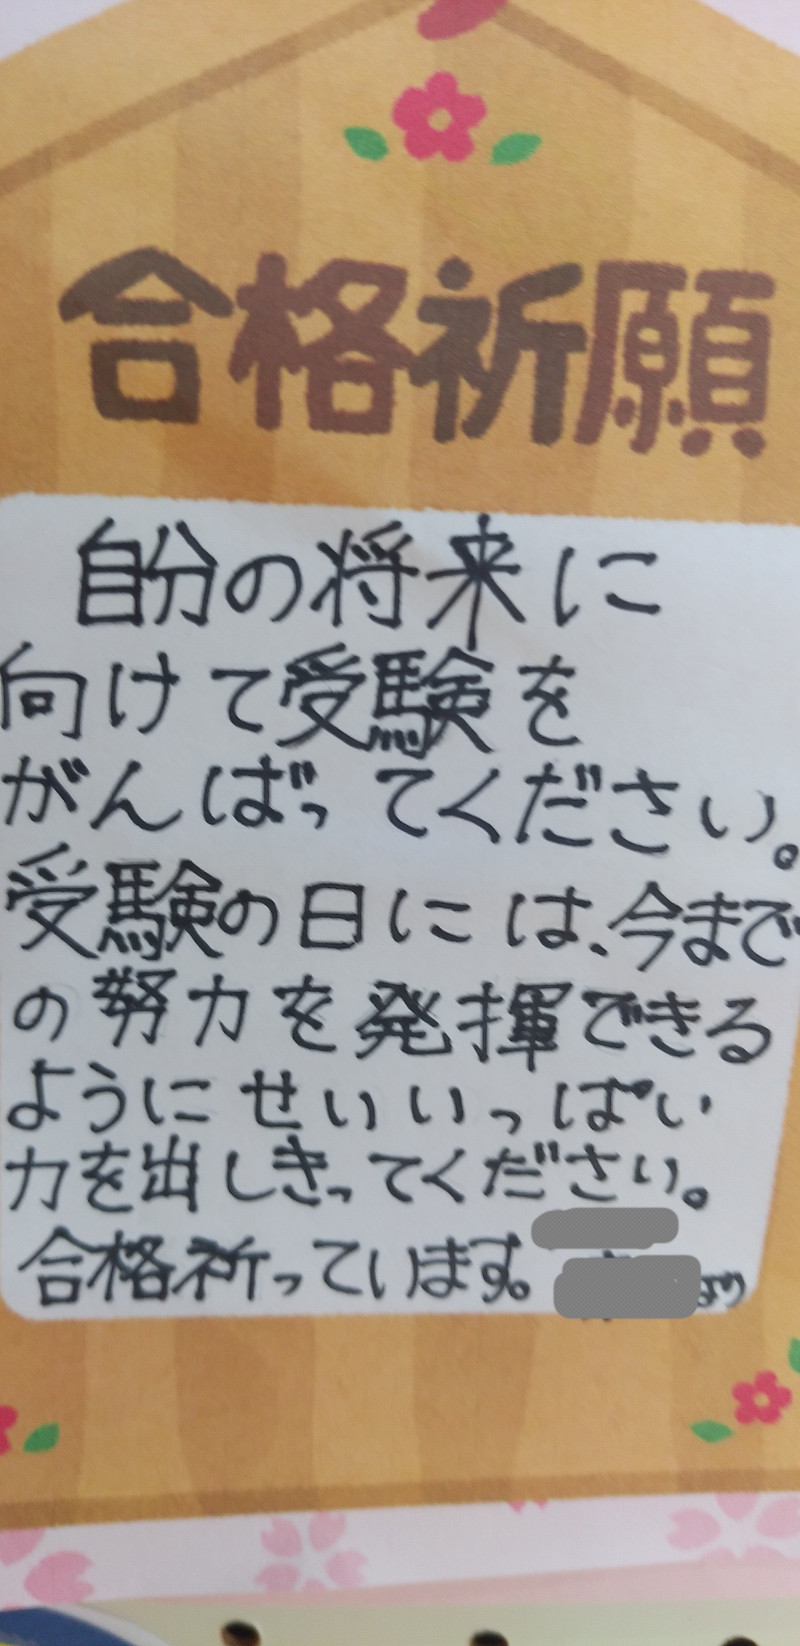 合格祈願
自分の将来に
向けて受験を
がんばってください。
受験の日には、今まで
の努力を発揮できる
ようにせいいっぱい
力を出しきってください。
合格祈っています。
より